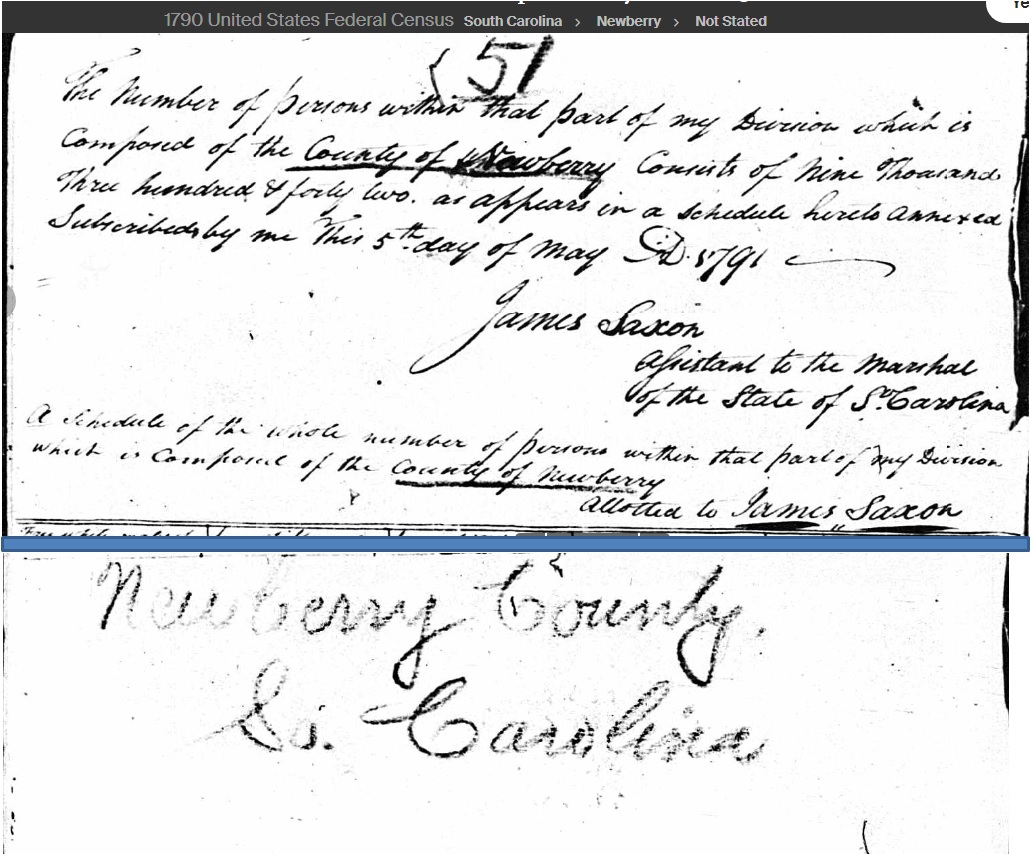 Ye
1790 United States Federal Census South Carolina > Newberry > Not Stated
51
The Number of persons within that part of my Division which is
Composed of the County of Newberry Consists of Nine Thousand
Three hundred & forty two. as appears in a schedule hereto annexed
Subscribed by me This 5th day of May AD. 1791
James Saxon
assistant to the Marshal
of the State of So. Carolina
A Schedule of the whole number of persons within that part of my Division
which is Composed of the County of Newberry
allotted to James Saxon
Newberry County.
So. Carolina